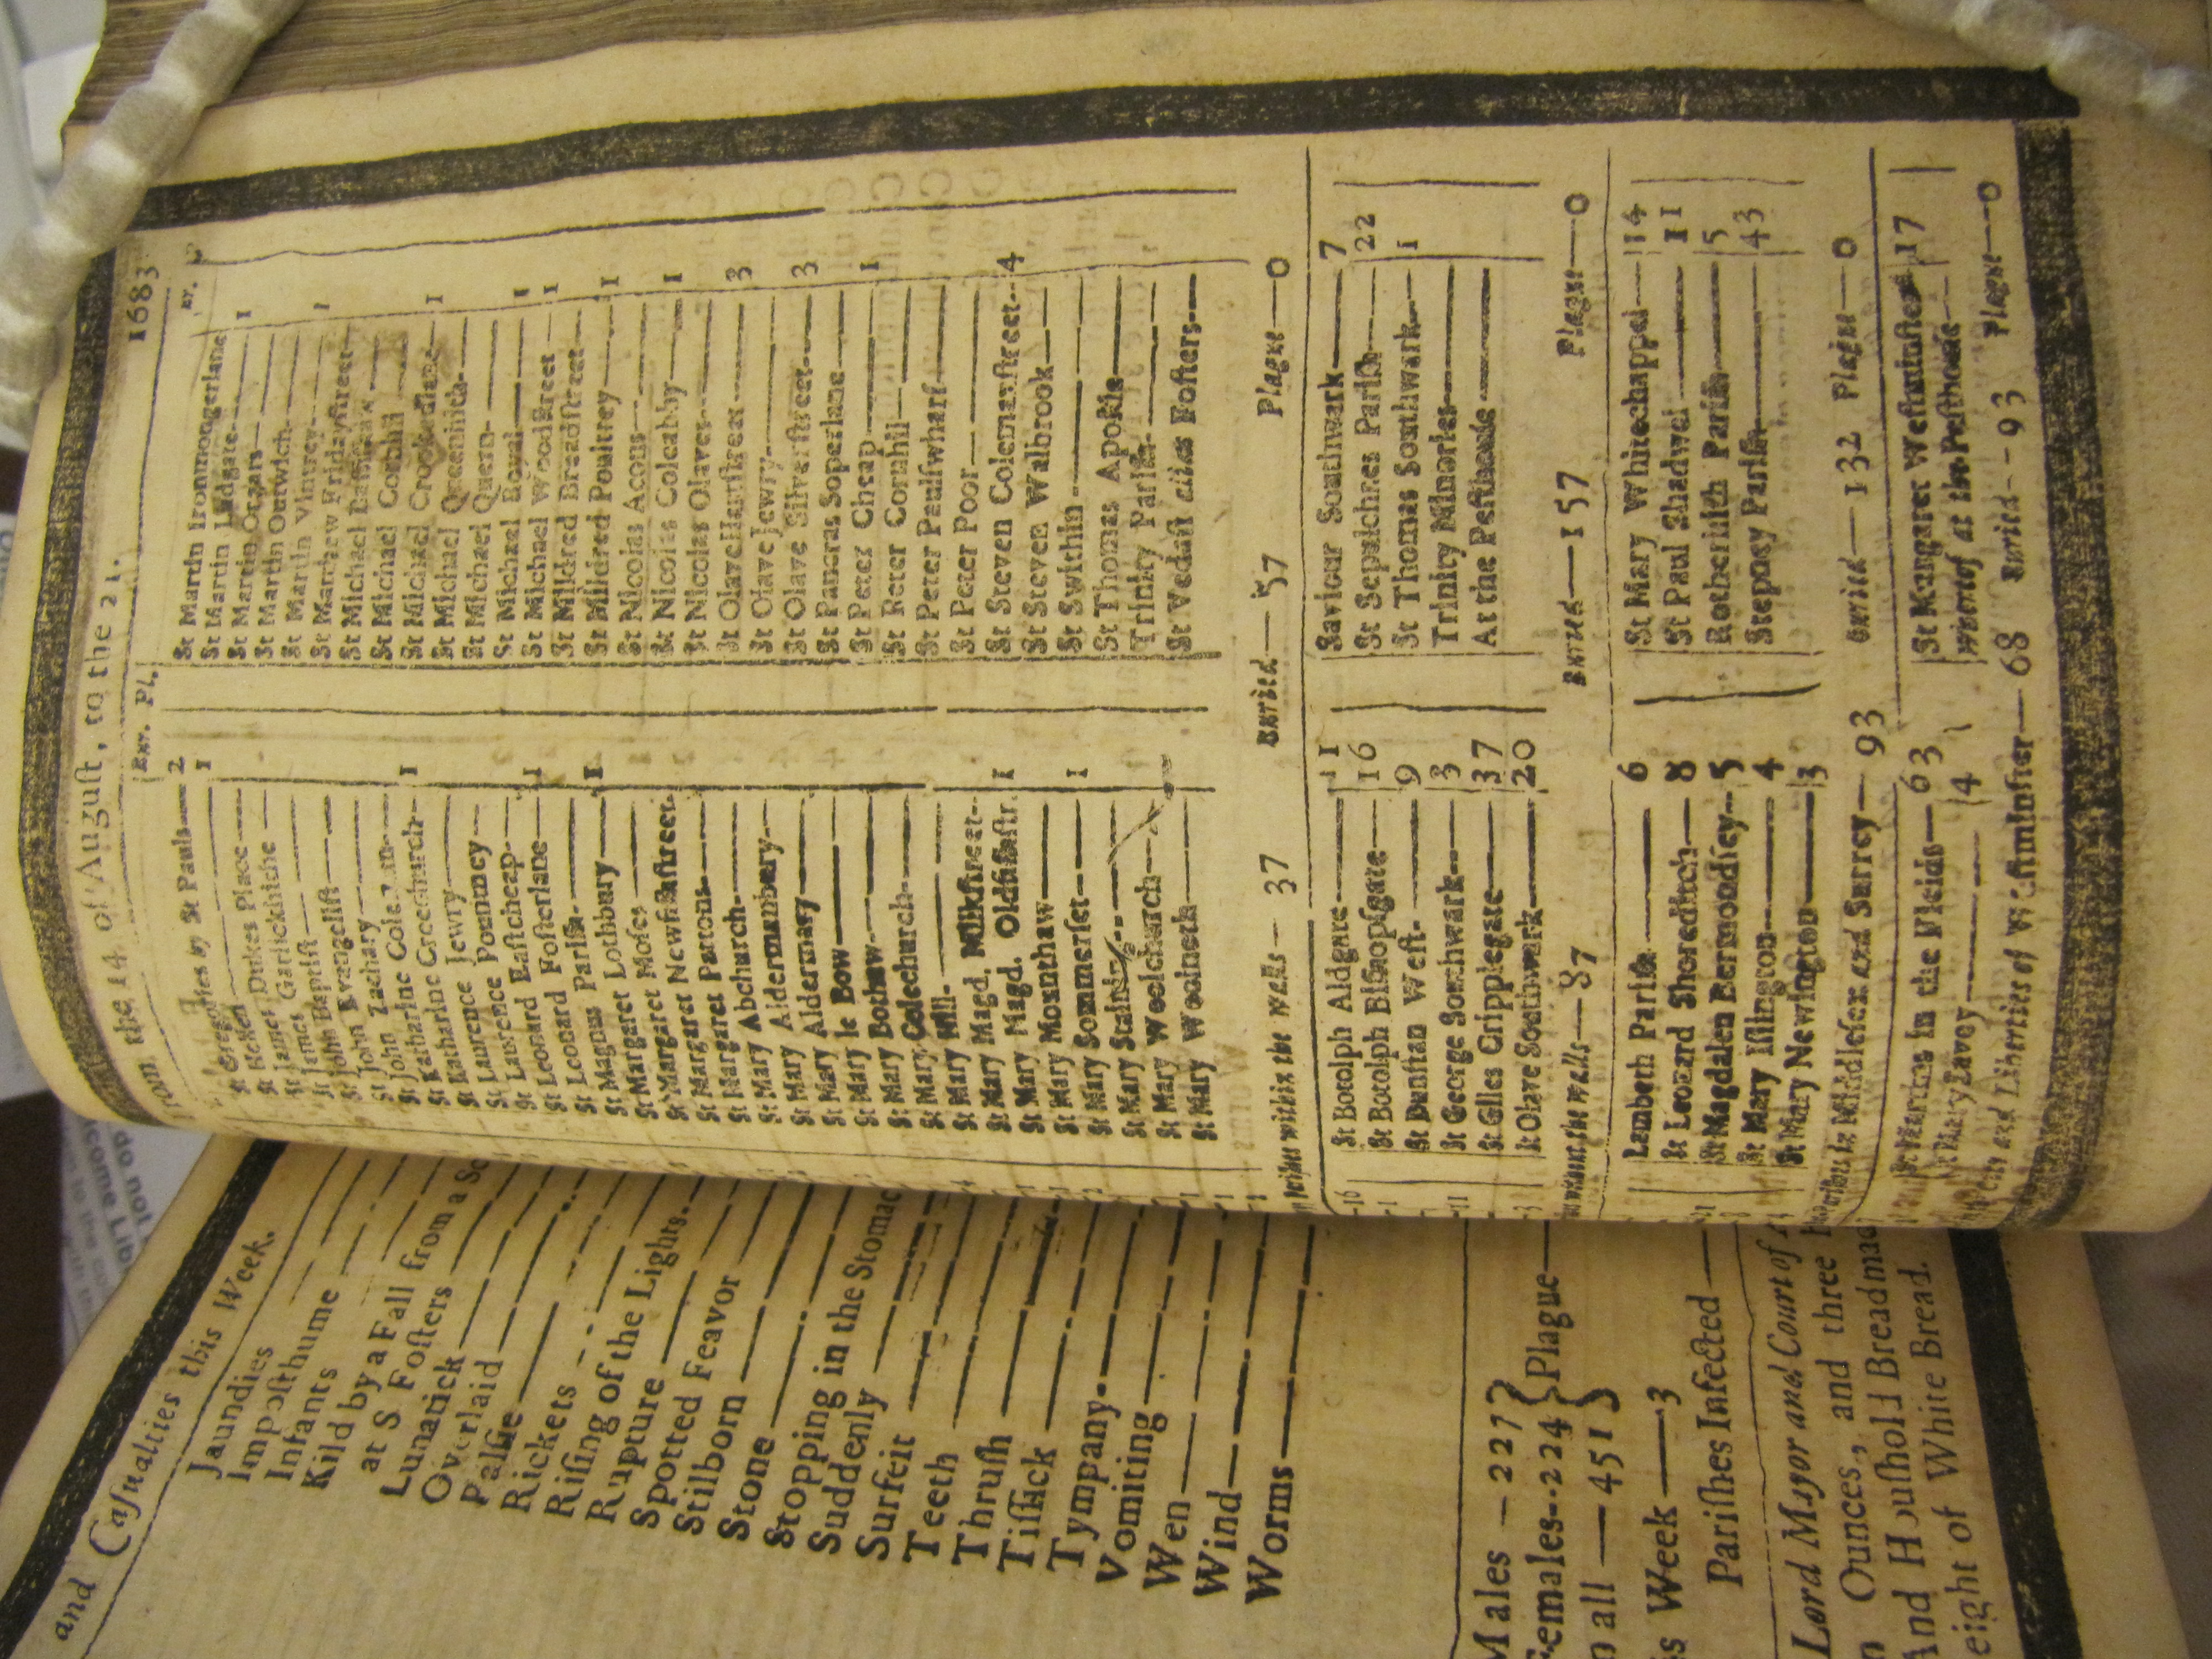 From the 14 of August, to the 21. 1683
Bur. Pl.
St Gregories by St Pauls—2
St Hellen—1
St James Dukes Place
St James Garlickhithe
St John Baptist
St John Evangelist
St John Zachary
St Katharine Coleman
St Katharine Creechurch—1
St Laurence Jewry
St Laurence Pountney
St Leonard Eastcheap
St Leonard Fosterlane—1
St Magnus Parish
St Margaret Lothbury—1
St Margaret Moses
St Margaret Newfishstreet
St Margaret Pattons
St Mary Abchurch
St Mary Aldermanbery
St Mary Aldermary
St Mary le Bow
St Mary Bothaw
St Mary Colechurch
St Mary Hill
St Mary Magd. Milkstreet
St Mary Magd. Oldfishstr. 1
St Mary Mounthaw
St Mary Sommerset—1
St Mary Staining
St Mary Woolchurch
St Mary Woolnoth
St Martin Ironmongerlane
St Martin Ludgate—1
St Martin Orgars
St Martin Outwich
St Martin Vintrey—1
St Matthew Fridaystreet
St Michael Bassishaw
St Michael Cornhil
St Michael Crookedlane—1
St Michael Queenhitha
St Michael Quern
St Michael Royal—1
St Michael Woodstreet—1
St Mildred Breadstreet
St Mildred Poultrey—1
St Nicolas Acons
St Nicolas Coleabby—1
St Nicolas Olaves
St Olave Hartstreet—3
St Olave Jewry
St Olave Silverstreet—3
St Pancras Soperlane
St Peter Cheap—1
St Peter Cornhil
St Peter Paulswharf
St Peter Poor
St Steven Colemanstreet—4
St Steven Walbrook
St Swithin
St Thomas Apostle
Trinity Parish
St Vedast alias Fosters
within the walls—37 Buried—57 Plague—0
St Botolph Aldgate—11
St Botolph Bishopsgate—16
St Dunstan West—9
St George Southwark—3
St Giles Cripplegate—37
St Olave Southwark—20
Saviour Southwark—7
St Sepulchres Parish—22
St Thomas Southwark—1
Trinity Minories
At the Pesthouse
without the walls—87 Buried—157 Plague—0
Lambeth Parish—6
St Leonard Shoreditch—8
St Magdalen Bermondsey—5
St Mary Islington—4
St Mary Newington—13
St Mary Whitechappel—14
St Paul Shadwel—11
Rotherhith Parish—5
Stepney Parish—43
in Middlesex and Surrey—93 Buried—132 Plague—0
St Martins in the Fields—63
St Mary Savoy—4
St Margaret Westminster—17
whereof at the Pesthouse
and Liberties of Westminster—68 Buried—93 Plague—0
and Casualties this Week.
Jaundies
Imposthume
Infants
Kild by a Fall from a
at S Fosters
Lunatick
Overlaid
Palsie
Rickets
Rising of the Lights
Rupture
Spotted Feavor
Stilborn
Stone
Stopping in the Stomac
Suddenly
Surfeit
Teeth
Thrush
Tissick
Tympany
Vomiting
Wen
Wind
Worms
Males—227
Females—224
all—451
Plague
Week—3
Parishes Infected
Lord Mayor and Court of
Ounces, and three
And Houshold Bread mad
eight of White Bread.